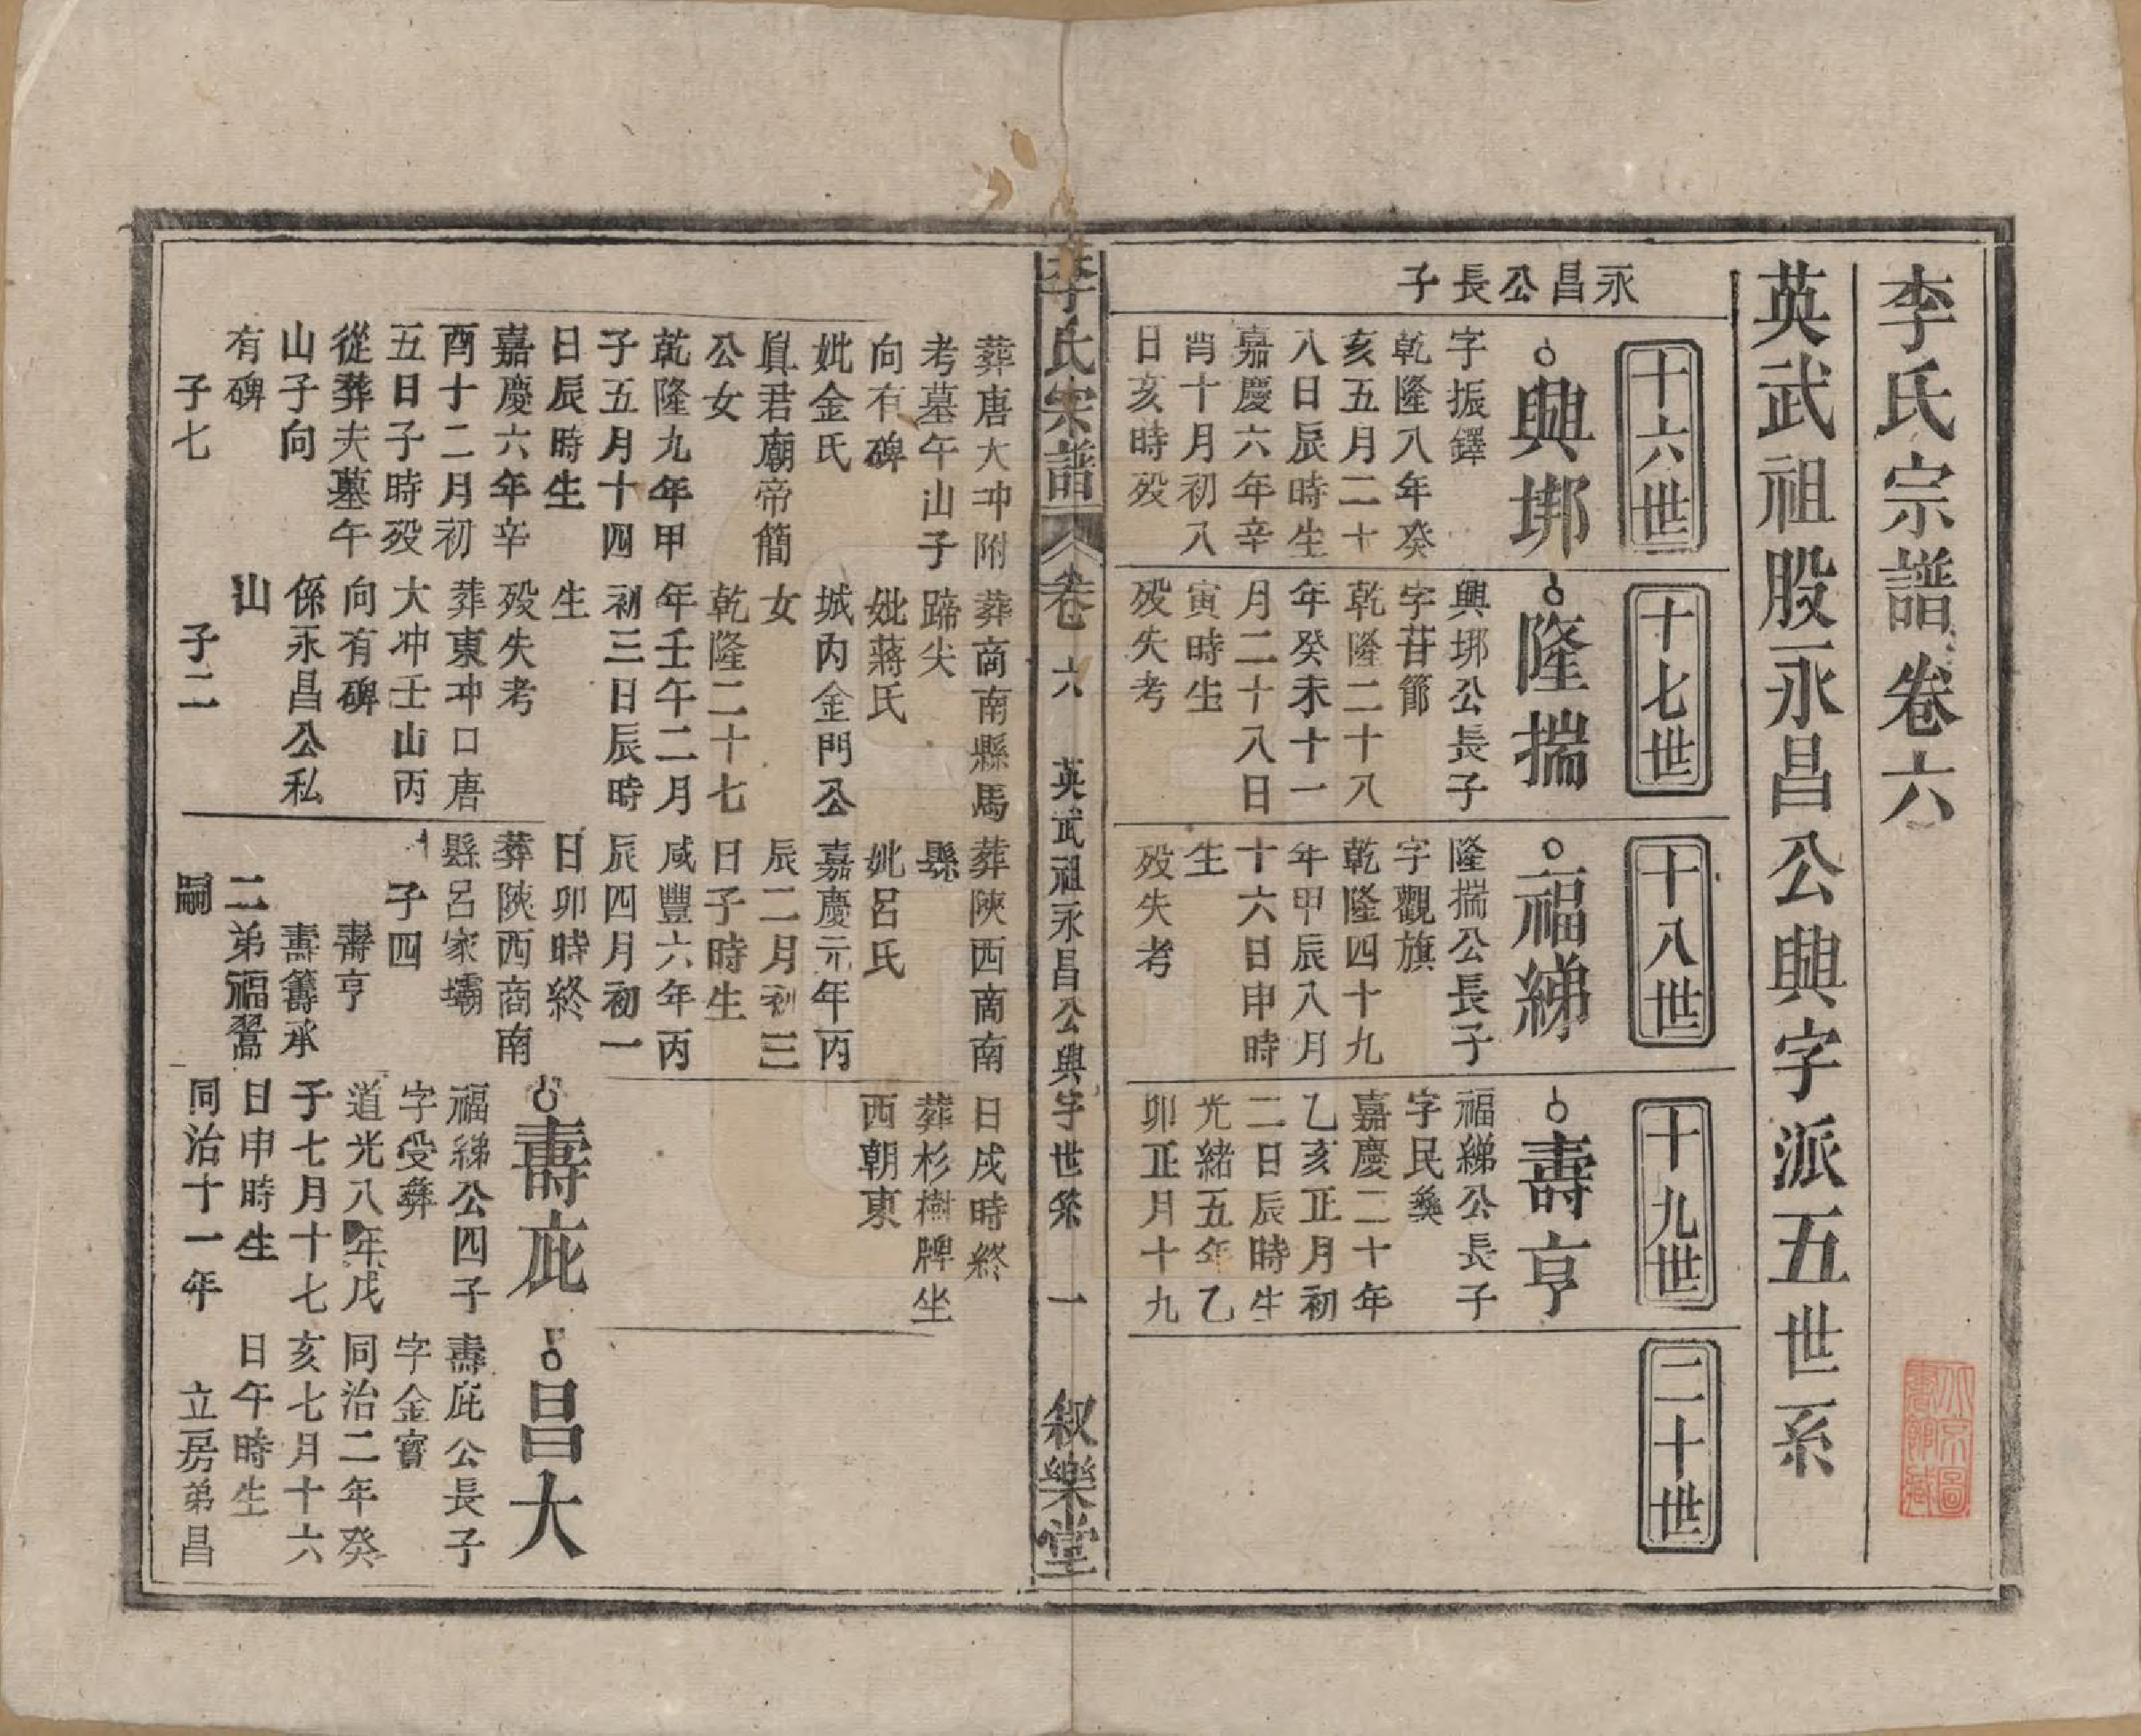 李氏宗譜卷六
英武祖股永昌公興字派五世系
永昌公長子
十六世
興垹
字振鐸
乾隆八年癸
亥五月二十
八日辰時生
嘉慶六年辛
酉十月初八
日亥時殁
十七世
隆揣
興垹公長子
字苷節
乾隆二十八
年癸未十一
月二十八日
寅時生
殁失考
十八世
福綈
隆揣公長子
字觀旗
乾隆四十九
年甲辰八月
十六日申時
生
殁失考
十九世
壽亨
福綈公長子
字民彜
嘉慶二十年
乙亥正月初
二日辰時生
光緒五年乙
卯正月十九
二十世
李氏宗譜
卷六
英武祖永昌公興字世系
一
叙樂堂
葬唐大冲附
考墓午山子
向有碑
妣金氏
眞君廟帝簡
公女
乾隆九年甲
子五月十四
日辰時生
嘉慶六年辛
酉十二月初
五日子時殁
從葬夫墓午
山子向
有碑
子七
葬商南縣馬
蹄尖
妣蔣氏
城內金門公
女
乾隆二十七
年壬午二月
初三日辰時
生
殁失考
葬東冲口唐
大冲壬山丙
向有碑
係永昌公私
山
子二
葬陝西商南
縣
妣呂氏
嘉慶元年丙
辰二月初三
日子時生
咸豐六年丙
辰四月初一
日卯時終
葬陝西商南
縣呂家壩
子四
壽亨
壽籌承
二弟福翯
嗣
日戌時終
葬杉樹牌坐
西朝東
壽庇
福綈公四子
字受彝
道光八年戊
子七月十七
日申時生
同治十一年
昌大
壽庇公長子
字金寳
同治二年癸
亥七月十六
日午時生
立房弟昌